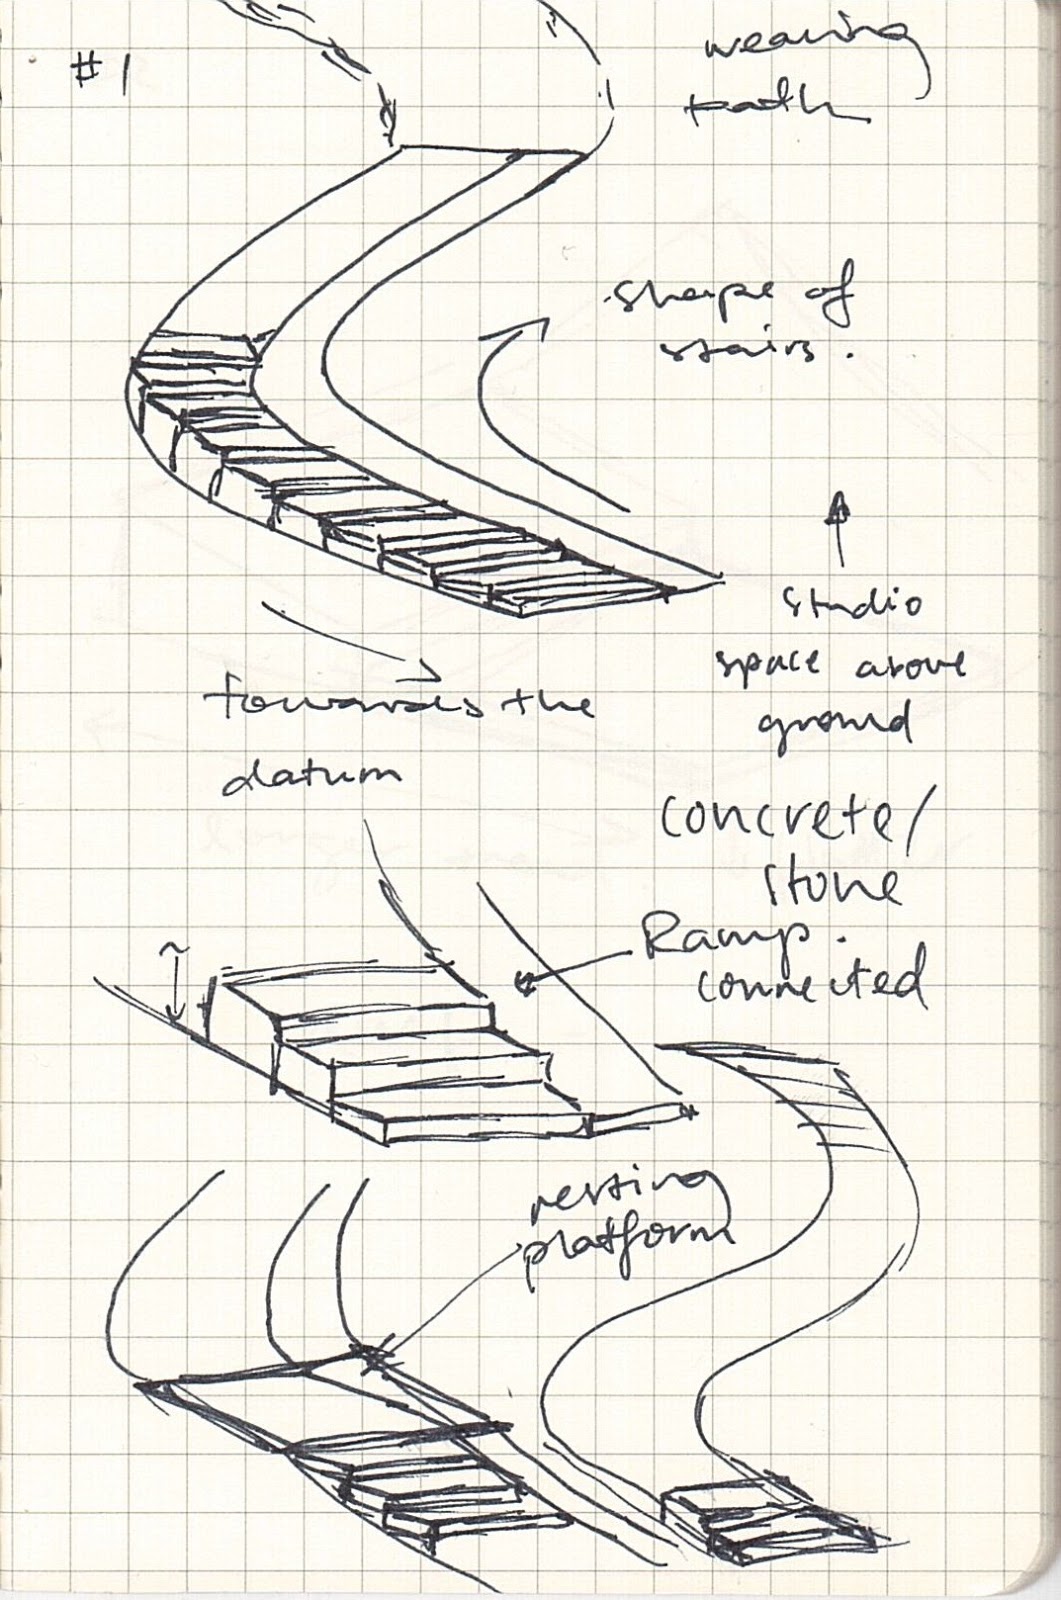 #1
weaving
path
shape of
stairs.
studio
space above
ground
towards the
datum
concrete/
stone
Ramp.
connected
resting
platform